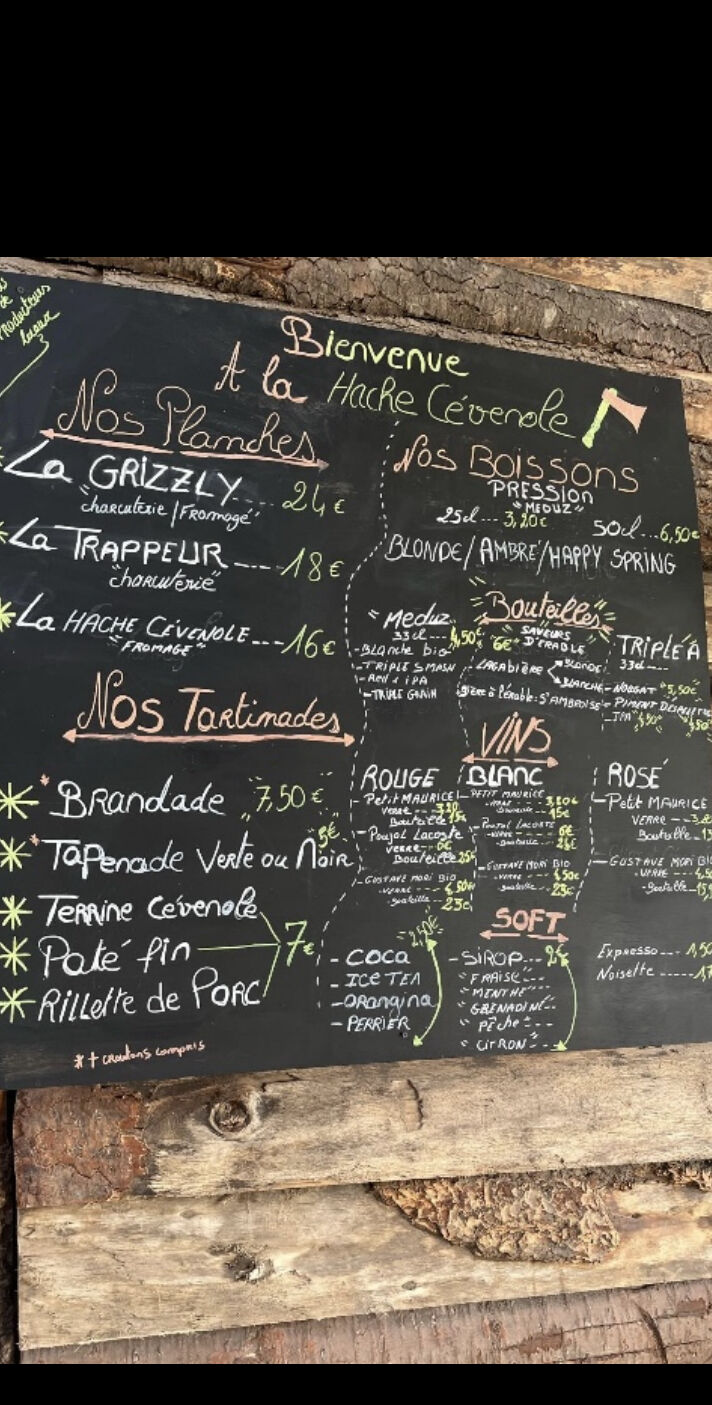 Producteurs
locaux
Bienvenue
A la Hache Cévenole
Nos Planches
La GRIZZLY --- 24€
"charcuterie/Fromage"
La TRAPPEUR --- 18€
"charcuterie"
La HACHE CÉVENOLE --- 16€
"FROMAGE"
Nos Tartinades
* Brandade "7,50€"
* Tapenade Verte ou Noir "5€"
Terrine Cévenole
Paté fin
Rillette de Porc
7€
* + croutons compris
Nos BOISSONS
PRESSION
"MEDUZ"
25cl --- 3,20€
50cl --- 6,50€
BLONDE/AMBRÉ/HAPPY SPRING
"Bouteilles"
"Meduz"
33cl --- 4,50€
- Blanche bio
- TRIPLE SMASH
- Red IPA
- TRIPLE GARIN
"SAVEURS
6€ D'ÉRABLE
- LAGABIÈRE
BLONDE
BLANCHE
Bière à l'érable: S'AMBROISE
TRIPLE A
33cl ---
- NOUGAT "5,50€"
- PIMENT
- IPA "4,50"
VINS
ROUGE
- Petit MAURICE
VERRE --- 3,20
Bouteille 15€
- Poujol Lacoste
verre -- 6€
Bouteille 25€
- GUSTAVE MORI BIO
- VERRE --- 4,50€
- Bouteille --- 23€
BLANC
- PETIT MAURICE
- VERRE --- 3,20€
- Bouteille --- 15€
- Poujol Lacoste
- VERRE --- 6€
- Bouteille ---
- GUSTAVE MORI BIO
- VERRE --- 4,50€
- Bouteille --- 23€
ROSÉ
- Petit MAURICE
VERRE ---
Bouteille -
- GUSTAVE MORI BIO
- VERRE ---
- Bouteille ---
SOFT
"2,50€"
- COCA
- ICE TEA
- ORANGINA
- PERRIER
- SIROP --- 2€
"FRAISE" --
"MENTHE"
"GRENADINE" --
"Pêche" ---
"CITRON" ---
Expresso ---- 1,50
Noisette -----